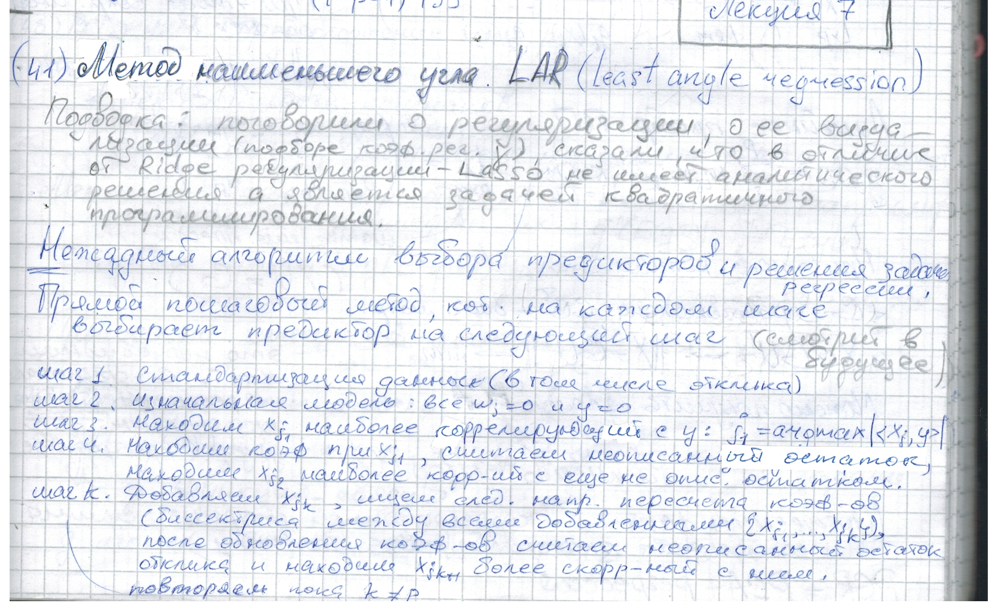 Лекция 7
(41) Метод наименьшего угла. LAR (least angle regression)
Подводка: поговорили о регуляризации, о ее визуа-
лизации (подборе коэф. рег. γ), сказали, что в отличие
от Ridge регуляризации - Lasso не имеет аналитического
решения а является задачей квадратичного
программирования.
Нежадный алгоритм выбора предикторов и решения задачи
регрессии.
Прямой пошаговый метод, кот. на каждом шаге
выбирает предиктор на следующий шаг (смотрит в
будущее)
шаг 1 стандартизация данных (в том числе отклика)
шаг 2. изначальная модель: все wj=0 и y=0
шаг 3. Находим xj1 наиболее коррелирующий с y: j1 = argmax|<xj, y>|
шаг 4. Находим коэф при xj1, считаем неописанный остаток,
находим xj2 наиболее корр-ий с еще не опис. остатком.
шаг k. Добавляем xjk, ищем след. напр. пересчета коэф-ов
(биссектриса между всеми добавленными {xj1,...,xjk}),
после обновления коэф-ов считаем неописанный остаток
отклика и находим xjk+1 более скорр-ный с ним.
повторяем пока k ≠ p